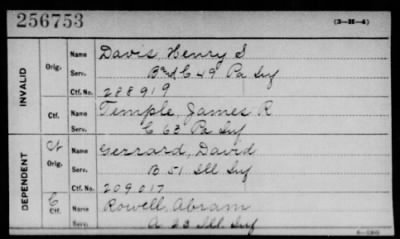 256753 (3-H-4)
INVALID
Orig. Name Davis, Henry S
Serv. B C 49 Pa Inf
Ctf. No. 288919
Ctf. Name Temple, James R
Serv. C 63 Pa Inf
DEPENDENT
Ct Orig. Name Gerrard, David
Serv. B 51 Ill Inf
Ctf. No. 209017
C Ctf. Name Rowell, Abram
Serv. A Ill. Inf